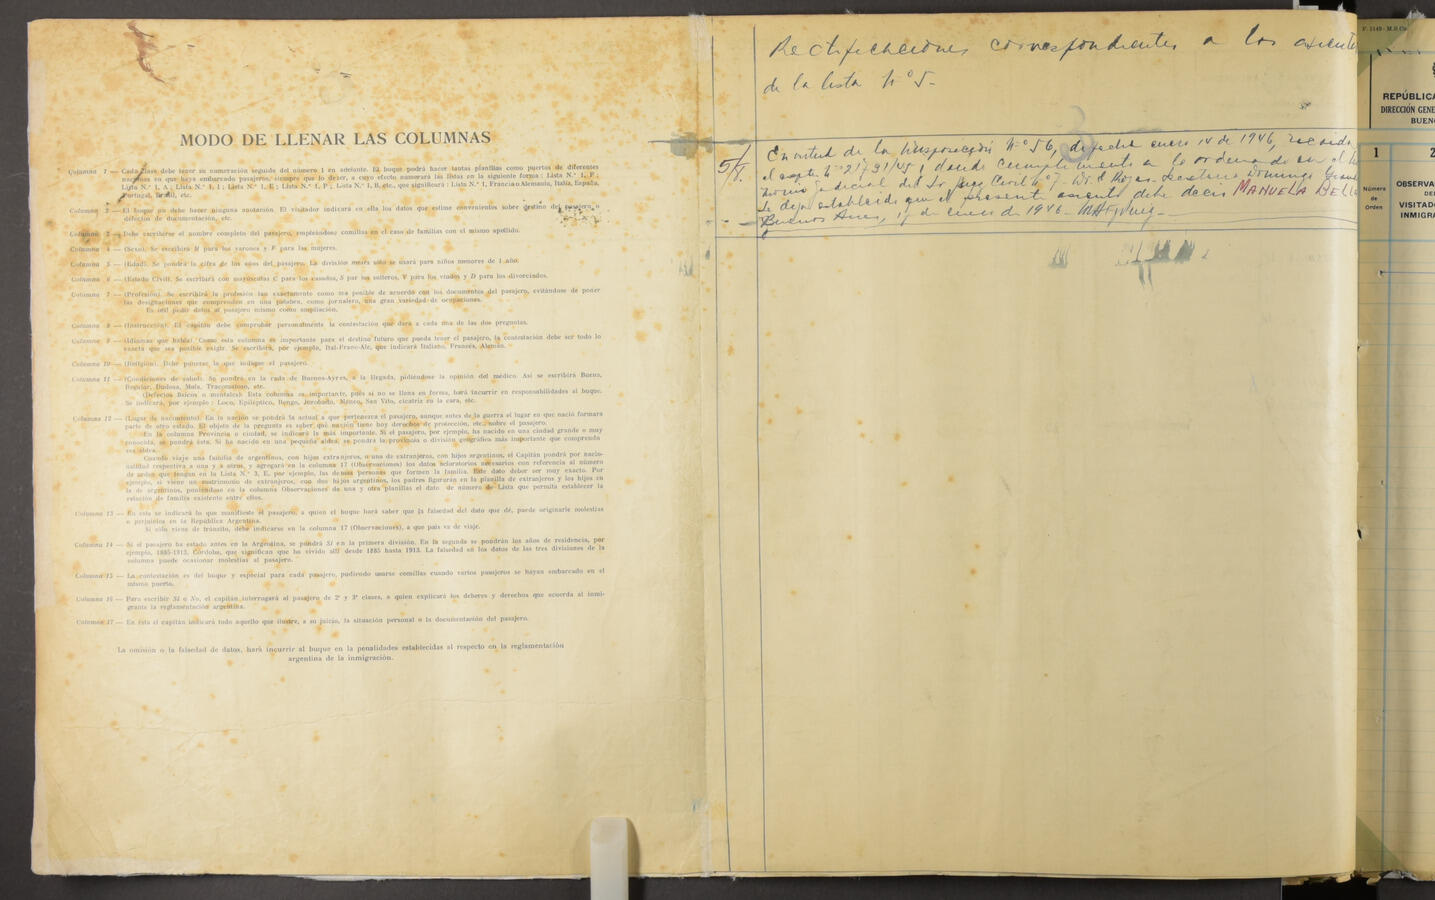 MODO DE LLENAR LAS COLUMNAS
Columna 1 — Cada clase debe tener su numeración seguida del número 1 en adelante. El buque podrá hacer tantas planillas como puertos de diferentes
naciones en que haya embarcado pasajeros, siempre que lo deber, a cuyo efecto numerará las listas en la siguiente forma: Lista N.º 1, F;
Lista N.º 1, A; Lista N.º 1, I; Lista N.º 1, E; Lista N.º 1, P; Lista N.º 1, B, etc., que significará: Lista N.º 1, Francia o Alemania, Italia, España,
Portugal, Brasil, etc.
Columna 2 — El buque no debe hacer ninguna anotación. El visitador indicará en ella los datos que estime convenientes sobre destino del pasajero o
defición de documentación, etc.
Columna 3 — Debe escribirse el nombre completo del pasajero, empleándose comillas en el caso de familias con el mismo apellido.
Columna 4 — (Sexo). Se escribirá M para los varones y F para las mujeres.
Columna 5 — (Edad). Se pondrá la cifra de los años del pasajero. La división meses sólo se usará para niños menores de 1 año.
Columna 6 — (Estado Civil). Se escribirá con mayúsculas C para los casados, S par los solteros, V para los viudos y D para los divorciados.
Columna 7 — (Profesión). Se escribirá la profesión tan exactamente como sea posible de acuerdo con los documentos del pasajero, evitándose de poner
las designaciones que comprenden en una palabra, como jornalero, una gran variedad de ocupaciones.
Es útil pedir datos al pasajero mismo como ampliación.
Columna 8 — (Instrucción). El capitán debe comprobar personalmente la contestación que dará a cada una de las dos preguntas.
Columna 9 — (Idiomas que habla). Como esta columna es importante para el destino futuro que pueda tener el pasajero, la contestación debe ser todo lo
exacta que sea posible exigir. Se escribirá, por ejemplo, Ital-Franc-Ale, que indicará Italiano, Francés, Alemán.
Columna 10 — (Religión). Debe ponerse la que indique el pasajero.
Columna 11 — (Condiciones de salud). Se pondrá en la rada de Buenos-Ayres, a la llegada, pidiéndose la opinión del médico. Así se escribirá Buena,
Regular, Dudosa, Mala, Tracomatoso, etc.
(Defectos físicos o mentales). Esta columna es importante, pues si no se llena en forma, hará incurrir en responsabilidades al buque.
Se indicará, por ejemplo: Loco, Epiléptico, Rengo, Jorobado, Manco, San Vito, cicatriz en la cara, etc.
Columna 12 — (Lugar de nacimiento). En la nación se pondrá la actual a que pertenezca el pasajero, aunque antes de la guerra el lugar en que nació formara
parte de otro estado. El objeto de la pregunta es saber qué nación tiene hoy derechos de protección, etc., sobre el pasajero.
En la columna Provincia o ciudad, se indicará la más importante. Si el pasajero, por ejemplo, ha nacido en una ciudad grande o muy
conocida, se pondrá ésta. Si ha nacido en una pequeña aldea, se pondrá la provincia o división geográfica más importante que comprenda
esa aldea.
Cuando viaje una familia de argentinos, con hijos extranjeros, o una de extranjeros, con hijos argentinos, el Capitán pondrá por nacio-
nalidad respectiva a una y a otros, y agregará en la columna 17 (Observaciones) los datos aclaratorios necesarios con referencia al número
de orden que tengan en la Lista N.º 3, E, por ejemplo, las demás personas que formen la familia. Este dato deber ser muy exacto. Por
ejemplo, si viene un matrimonio de extranjeros, con dos hijos argentinos, los padres figurarán en la planilla de extranjeros y los hijos en
la de argentinos, poniéndose en la columna Observaciones de una y otra planillas el dato de número de Lista que permita establecer la
relación de familia existente entre ellos.
Columna 13 — En esta se indicará lo que manifieste el pasajero, a quien el buque hará saber que la falsedad del dato que dé, puede originarle molestias
o perjuicios en la República Argentina.
Si sólo viene de tránsito, debe indicarse en la columna 17 (Observaciones), a que país va de viaje.
Columna 14 — Si el pasajero ha estado antes en la Argentina, se pondrá Sí en la primera división. En la segunda se pondrán los años de residencia, por
ejemplo, 1885-1913, Córdoba, que significan que ha vivido allí desde 1885 hasta 1913. La falsedad en los datos de las tres divisiones de la
columna puede ocasionar molestias al pasajero.
Columna 15 — La contestación es del buque y especial para cada pasajero, pudiendo usarse comillas cuando varios pasajeros se hayan embarcado en el
mismo puerto.
Columna 16 — Para escribir Sí o No, el capitán interrogará al pasajero de 2ª y 3ª clases, a quien explicará los deberes y derechos que acuerda al inmi-
grante la reglamentación argentina.
Columna 17 — En ésta el capitán indicará todo aquello que ilustre, a su juicio, la situación personal o la documentación del pasajero.
La omisión o la falsedad de datos, hará incurrir al buque en la penalidades establecidas al respecto en la reglamentación
argentina de la inmigración.
Rectificaciones correspondientes a los asiento
de la lista Nº 5-
5/8. En virtud de la disposición Nº 56, de fecha enero 14 de 1946, recaida
el expte. Nº 21791/45, donde cumplimiento a lo ordenado en el
judicial del Sr Juez Civil Nº 7- Dr. E. Rojas- Secretario Domingo
Se deja establecido que el presente asiento debe decir MANUELA DELL
Buenos Aires, 17 de enero de 1946-
REPÚBLICA
DIRECCIÓN GENE
BUENO
1
2
Número
de
Orden
OBSERVA
DEL
VISITADO
INMIGRA
1